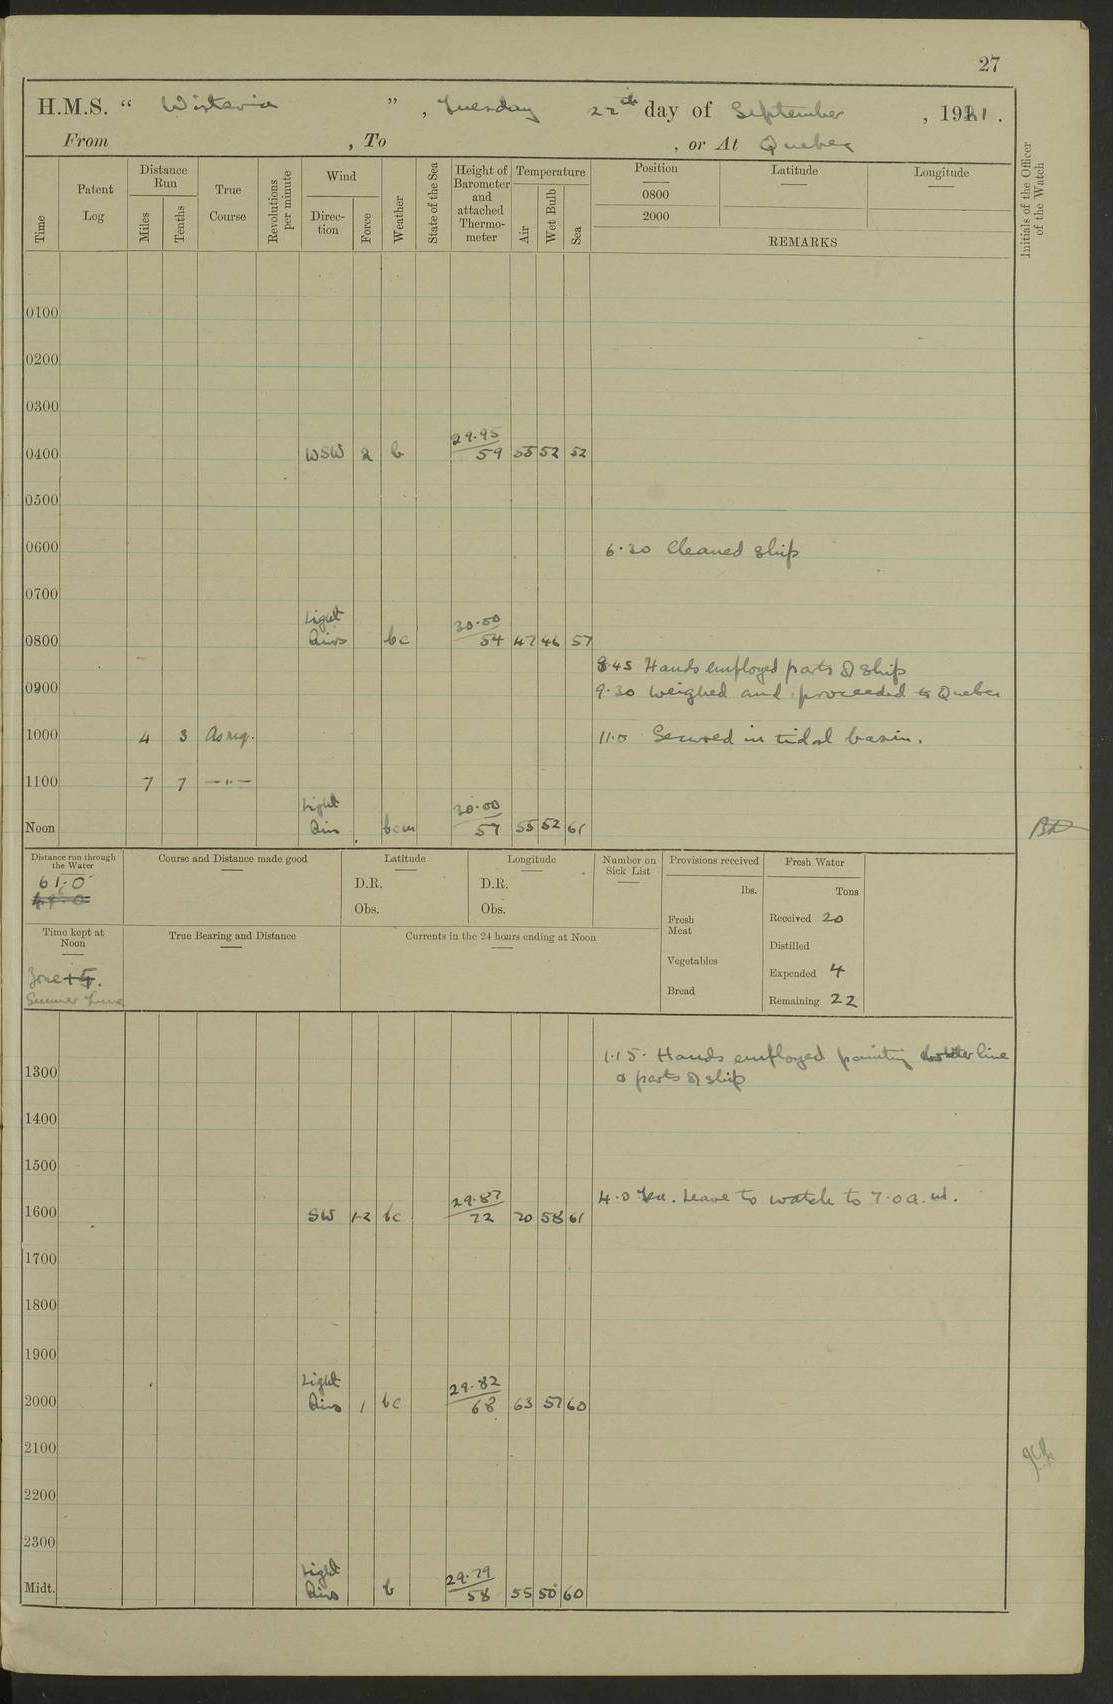 27
H.M.S. “ Wistaria ” , Tuesday 27th day of September , 1921 .
From , To , or At Quebec
Time
Patent Log
Distance Run
Miles
Tenths
True Course
Revolutions per minute
Wind
Direc-tion
Force
Weather
State of the Sea
Height of Barometer and attached Thermo-meter
Temperature
Air
Wet Bulb
Sea
Position
0800
2000
Latitude
Longitude
REMARKS
Initials of the Officer of the Watch
0100
0200
0300
0400 WSW 2 b 29.95 59 55 52 52
0500
0600 6.30 Cleaned ship
0700
0800 Light Airs bc 30.00 54 47 46 57
8.45 Hands employed parts of ship
0900 9.30 Weighed and proceeded to Quebec
1000 4 3 As req. 11.0 Secured in tidal basin.
1100 7 7 — " —
Noon Light Airs bcm 30.00 57 55 52 61
Distance run through the Water
61.0
Course and Distance made good
Latitude
D.R.
Obs.
Longitude
D.R.
Obs.
Number on Sick List
Provisions received
lbs.
Fresh Meat
Vegetables
Bread
Fresh Water
Tons
Received 20
Distilled
Expended 4
Remaining 22
Time kept at Noon
Zone +4.
Summer Time
True Bearing and Distance
Currents in the 24 hours ending at Noon
1.15. Hands employed painting line
1300 & parts of ship
1400
1500
4.0 Tea. Leave to watch to 7.0 a.m.
1600 SW 1-2 bc 29.87 72 70 58 61
1700
1800
1900
2000 Light Airs 1 bc 29.82 68 63 57 60
2100
2200
2300
Midt. Light Airs b 29.79 58 55 50 60